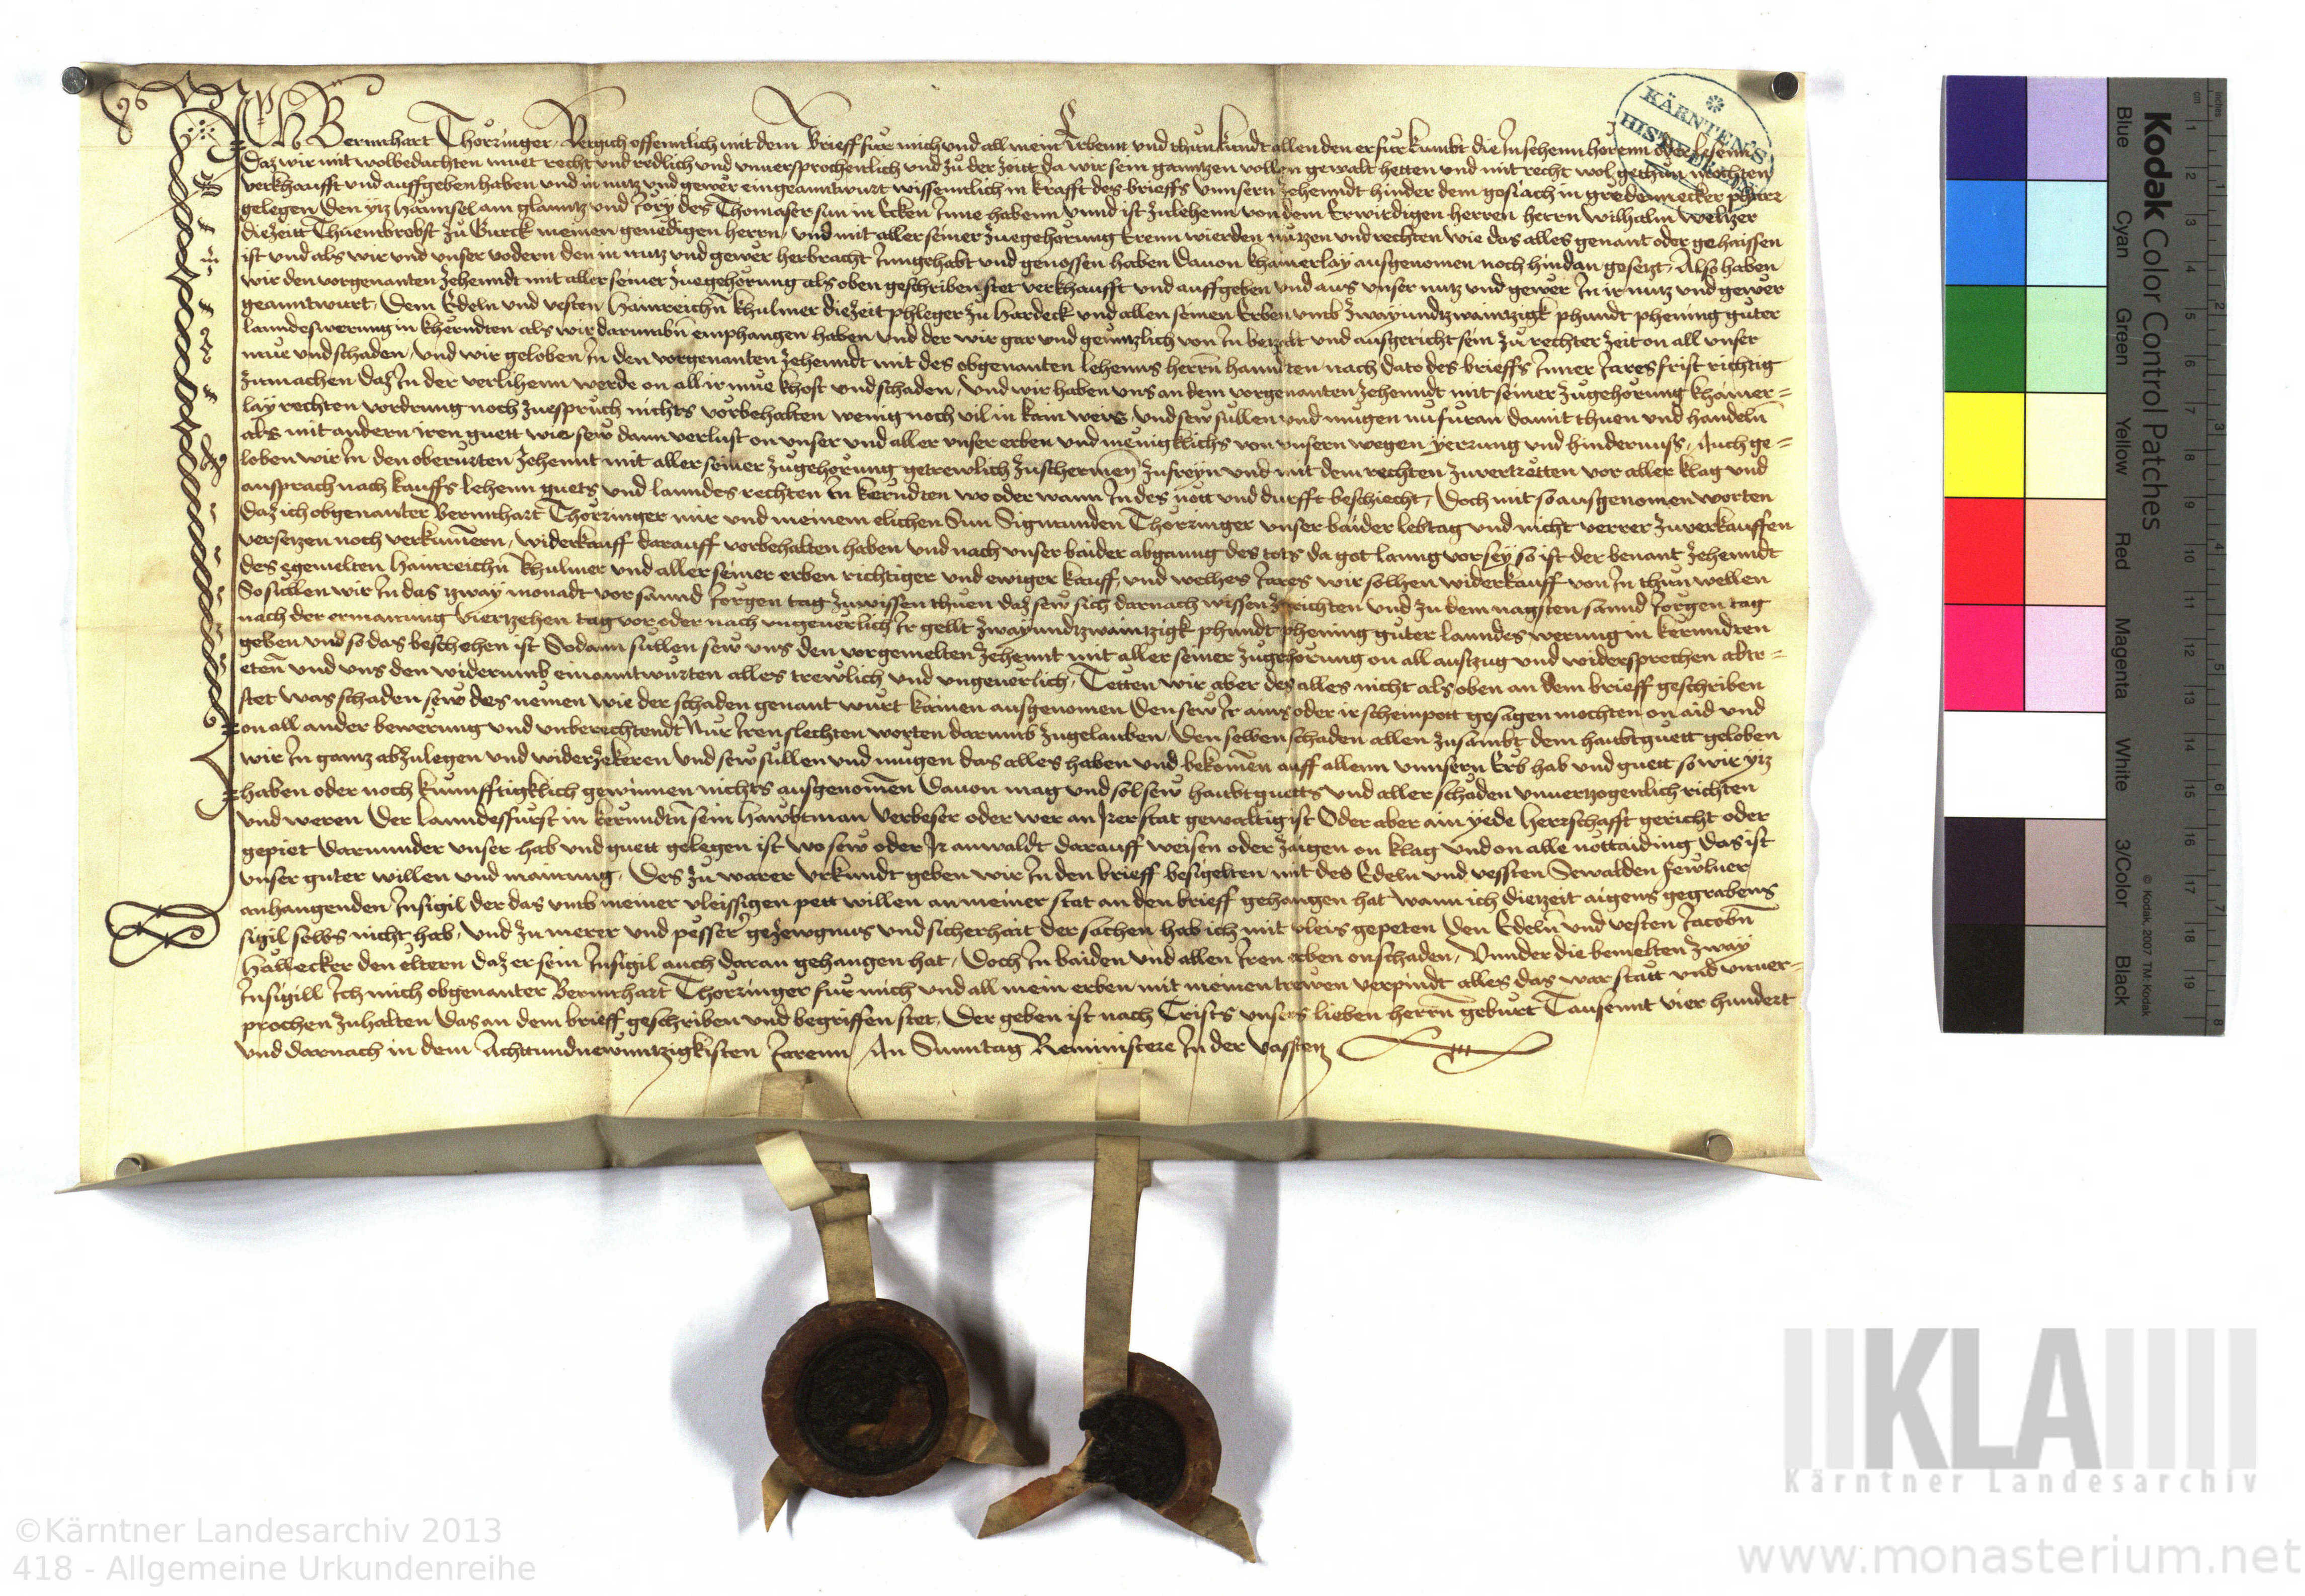 Ich Bernnhart Thorzinger Vergich offenntlich mit dem brieff fur mich und all mein Erbenn und thun kundt allen den er fur kumbt die In sehenn horenn oder lesenn
Daz wir mit wolbedachten muet recht und redlich und unuersprochenlich und zu der Zeitt da wir sein ganntzen vollen gewalt hetten und mit recht wol gethun mochten
verkhaufft und auffgeben haben und in nutz und gewer eingeanntwurt wissenntlich in krafft des brieffs Vnnsern zehenndt hinder dem gosiach in gredennecker pharr
gelegen den ytz Hannsel am glanntz und Jory des Thomaser sun in Ecken Inne habenn Vnnd ist zulehenn von dem Erwirdigen herren herrn wilhalm welzer
die zeitt Thuembrobst zu Gurck meinen genedigen herrn und mit aller seiner zuegehorung Erenn wierden nutzen und rechten wie das alles genant oder gehaissen
ist und als wir und unser vodern den in nutz und gewer herbracht Inngehabt und genossen haben dauon khainerlay ausgenomen noch hindan gesetzt Also haben
wir den vorgenanten zehenndt mit aller seiner zuegehorung als oben geschriben stet verkhaufft und auffgeben und aus unser nutz und gewer In ir nutz und gewer
geanntwurt Dem Edeln und vesten Hainreichn khulmer die zeit phleger zu Hardeck und allen seinen Erben umb zwayundzwaintzigk phundt phening guter
lanndeswerung in kherndten als wir darumbn emphangen haben und der wir gar und genntzlich von In betzalt und ausgericht sein zu rechter zeit on all unser
mue und schaden und wir geloben In den vorgenanten zehenndt mit des obgenanten lehenns herrn hanndten nach dato des brieffs Inner Jares frist richtig
zumachen daz In der verlihenn werde on all ir mue khost und schaden und wir haben uns an dem vorgenanten zehenndt mit seiner zugehorung khainer=
lay rechten vordrung noch zuespruch nichts vorbehalten wenig noch vil in kain weis und sew sullen und mugen nu furan damit thuen und handeln
als mit andern iren guett wie sew dann verlust on unser und aller unser erben und menigklichs von unsern wegen yerrung und hindernuss Auch ge=
loben wir In den oberurten zehennt mit aller seiner zugehorung getrewlich zuschermen zufreyn und mit dem rechten zuvertretten vor aller klag und
ansprach nach kauffs lehenn guets und lanndes rechten In kerndten wo oder wann In des nott und durfft beschiecht Doch mit so ausgenomen worten
daz ich obgenanter Bernnhart Thorzinger mir und meinem elichen Sun Sigmunden Thorzinger unser baider lebtag und nicht verrer zuverkauffen
versetzen noch verkumern widerkauff darauff vorbehalten haben und nach unser baider abganng des tots da got lanng vor sey so ist der benant zehenndt
des egemelten Hainreichn khulmer und aller seiner erben richtiger und ewiger kauff und welhes Jares wir solhen widerkauff von In thun wellen
So sullen wir In das zway monadt vor sannd Jorgen tag zuwissen thuen daz sew sich darnach wissen zerichten und zu dem nagsten sannd Jorgen tag
nach der ermanung viertzehen tag vor oder nach ungeuerlich Ir gellt zwayundzwaintzigk phundt phening guter lanndes werung in kernndten
geben und so das beschehen ist Sodann sullen sew uns den vorgemelten zehennt mit aller seiner zugehorung on all auszug und widersprechen abtr=
eten und uns den widerumb einanntwurten alles trewlich und ungeuerlich Tetten wir aber des alles nicht als oben an dem brieff geschriben
stet was schaden sew des nemen wie der schaden genant wurt kainen ausgenomen den sew Ir ains oder ir scheinpott gesagen mochten on aid und
on all ander bewerung und unberechtendt Nur Iren slechten worten darumb zugelauben Den selben schaden allen zusambt dem haubtguett geloben
wir In gantz abzulegen und widerzekeren und sew sullen und mugen das alles haben und bekomen auff allenn unnsern Erb hab und guett so wir ytz
haben oder noch kunfftigklich gewinnen nichts ausgenomen Dauon mag und sol sew haubtguetts und aller schaden unuerzogenlich richten
und weren Der lanndesfurst in kernndtn sein Hawbtman Verbeser oder wer an Irer stat gewaltig ist Oder aber ain yede Herrschafft gericht oder
gepiet darunnder unser hab und guett gelegen ist wo sew oder Ir anwaldt darauff weisen oder zaigen on klag und on alle nottaiding Das ist
unser guter willen und mainung Des zu warer Urkundt geben wir In den brieff besigelten mit des Edeln und vessten Sewalden Fewlner
anhangenden Insigil der das umb meiner vleissigen pett willen an meiner stat an den brieff gehangen hat wann ich die zeit aigens gegrabens
sigil selbs nicht hab und zu merer und pesser gezewgnus und sicherhait der sachen hab ich mit vleis gepeten Den Edeln und vesten Jacobn
Hallecker den eltern daz er sein Insigil auch daran gehangen hat Doch In baiden und allen Iren erben on schaden Vnnder die bemelten zway
Insigill Ich mich obgenanter Bernnhart Thorzinger fur mich und all mein erben mit meinen trewen verpindt alles das war statt und unuer=
prochen zuhalten Das an dem brieff geschriben und begriffen stet Der geben ist nach Crists unsers lieben herrn geburt Tausennt vier hundert
und darnach in dem Achtundnewntzigkisten Jarenn An Sunntag Reministere In der Vassten
KÄRNTEN'S
HIST.
Kodak Color Control Patches
Blue Cyan Green Yellow Red Magenta White 3/Color Black
© Kodak, 2007 TM: Kodak
inches 1 2 3 4 5 6 7 8
cm 1 2 3 4 5 6 7 8 9 10 11 12 13 14 15 16 17 18 19
KLA
Kärntner Landesarchiv
©Kärntner Landesarchiv 2013
418 - Allgemeine Urkundenreihe
www.monasterium.net